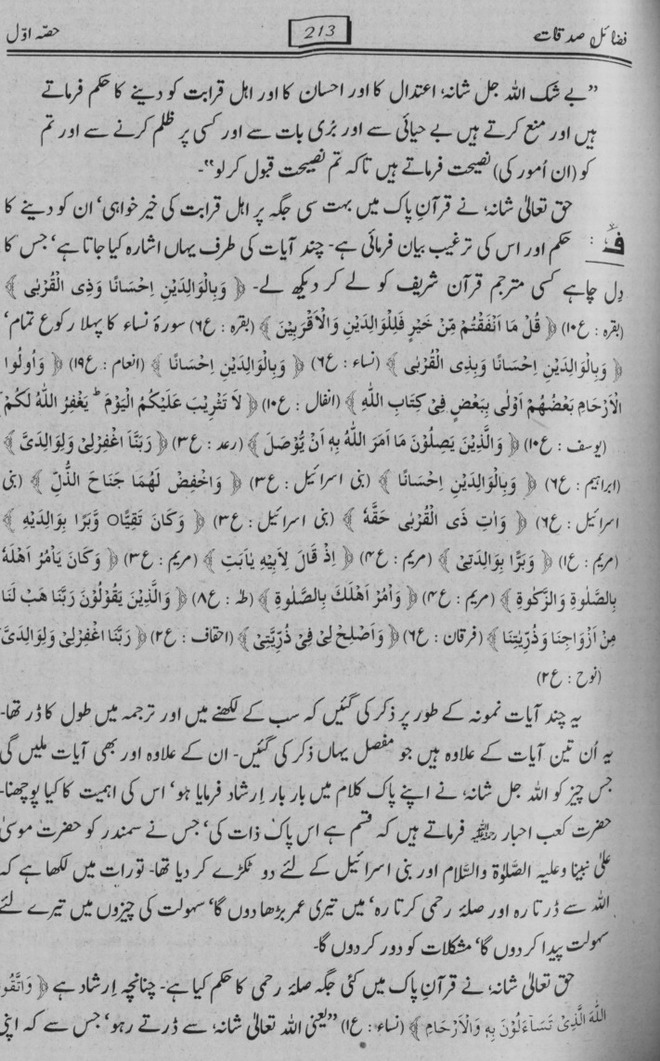 فضائل صدقات 213 حصّہ اوّل
”بے شک اللہ جل شانہٗ، اعتدال کا اور احسان کا اور اہل قرابت کو دینے کا حکم فرماتے
ہیں اور منع کرتے ہیں بے حیائی سے اور بُری بات سے اور کسی پر ظلم کرنے سے اور تم
کو (ان اُمور کی) نصیحت فرماتے ہیں تاکہ تم نصیحت قبول کر لو“۔
حق تعالیٰ شانہٗ، نے قرآنِ پاک میں بہت سی جگہ پر اہل قرابت کی خیر خواہی‘ ان کو دینے کا
ف : حکم اور اس کی ترغیب بیان فرمائی ہے۔ چند آیات کی طرف یہاں اشارہ کیا جاتا ہے‘ جس کا
دِل چاہے کسی مترجم قرآن شریف کو لے کر دیکھ لے۔ ﴿ وَبِالْوَالِدَيْنِ اِحْسَانًا وَذِي الْقُرْبٰى ﴾
(بقرہ : ع۱۰) ﴿ قُلْ مَا اَنْفَقْتُمْ مِّنْ خَيْرٍ فَلِلْوَالِدَيْنِ وَالْاَقْرَبِيْنَ ﴾ (بقرہ : ع۶) سورۂ نساء کا پہلا رکوع تمام‘
﴿ وَبِالْوَالِدَيْنِ اِحْسَانًا وَبِذِي الْقُرْبٰى ﴾ (نساء : ع۶) ﴿ وَبِالْوَالِدَيْنِ اِحْسَانًا ﴾ (انعام : ع۱۹) ﴿ وَاُولُوا
الْاَرْحَامِ بَعْضُهُمْ اَوْلٰى بِبَعْضٍ فِىْ كِتَابِ اللّٰهِ ﴾ (انفال : ع۱۰) ﴿ لَا تَثْرِيْبَ عَلَيْكُمُ الْيَوْمَ ؕ يَغْفِرُ اللّٰهُ لَكُمْ
(یوسف : ع۱۰) ﴿ وَالَّذِيْنَ يَصِلُوْنَ مَا اَمَرَ اللّٰهُ بِهٖ اَنْ يُّوْصَلَ ﴾ (رعد : ع۳) ﴿ رَبَّنَا اغْفِرْلِىْ وَلِوَالِدَىَّ ﴾
(ابراہیم : ع۶) ﴿ وَبِالْوَالِدَيْنِ اِحْسَانًا ﴾ (بنی اسرائیل : ع۳) ﴿ وَاخْفِضْ لَهُمَا جَنَاحَ الذُّلِّ ﴾ (بنی
اسرائیل : ع۶) ﴿ وَاٰتِ ذَى الْقُرْبٰى حَقَّهٗ ﴾ (بنی اسرائیل : ع۳) ﴿ وَكَانَ تَقِيًّا○ وَّبَرًّا بِوَالِدَيْهِ ﴾
(مریم : ع۱) ﴿ وَبَرًّا بِوَالِدَتِىْ ﴾ (مریم : ع۴) ﴿ اِذْ قَالَ لِاَبِيْهِ يٰاَبَتِ ﴾ (مریم : ع۳) ﴿ وَكَانَ يَاْمُرُ اَهْلَهٗ
بِالصَّلٰوةِ وَالزَّكٰوةِ ﴾ (مریم : ع۴) ﴿ وَاْمُرْ اَهْلَكَ بِالصَّلٰوةِ ﴾ (طٰہٰ : ع۸) ﴿ وَالَّذِيْنَ يَقُوْلُوْنَ رَبَّنَا هَبْ لَنَا
مِنْ اَزْوَاجِنَا وَذُرِّيّٰتِنَا ﴾ (فرقان : ع۶) ﴿ وَاَصْلِحْ لِىْ فِىْ ذُرِّيَّتِىْ ﴾ (احقاف : ع۲) ﴿ رَبَّنَا اغْفِرْلِىْ وَلِوَالِدَىَّ
(نوح : ع۲)
یہ چند آیات نمونہ کے طور پر ذکر کی گئیں کہ سب کے لکھنے میں اور ترجمہ میں طول کا ڈر تھا۔
یہ اُن تین آیات کے علاوہ ہیں جو مفصل یہاں ذکر کی گئیں۔ ان کے علاوہ اور بھی آیات ملیں گی
جس چیز کو اللہ جل شانہٗ، نے اپنے پاک کلام میں بار بار اِرشاد فرمایا ہو‘ اس کی اہمیت کا کیا پوچھنا۔
حضرت کعب احبار رضی اللہ عنہ فرماتے ہیں کہ قسم ہے اس پاک ذات کی‘ جس نے سمندر کو حضرت موسیٰ
علیٰ نبینا وعلیہ الصَّلوٰة والسَّلام اور بنی اسرائیل کے لئے دو ٹکڑے کر دیا تھا۔ تورات میں لکھا ہے کہ
اللہ سے ڈرتا رہ اور صلۂ رحمی کرتا رہ‘ میں تیری عمر بڑھا دوں گا‘ سہولت کی چیزوں میں تیرے لئے
سہولت پیدا کر دوں گا‘ مشکلات کو دور کر دوں گا۔
حق تعالیٰ شانہٗ، نے قرآنِ پاک میں کئی جگہ صلۂ رحمی کا حکم کیا ہے۔ چنانچہ اِرشاد ہے ﴿ وَاتَّقُو
اللّٰهَ الَّذِىْ تَسَآءَلُوْنَ بِهٖ وَالْاَرْحَامِ ﴾ (نساء : ع۱) ”یعنی اللہ تعالیٰ شانہٗ، سے ڈرتے رہو‘ جس سے کہ اپنی